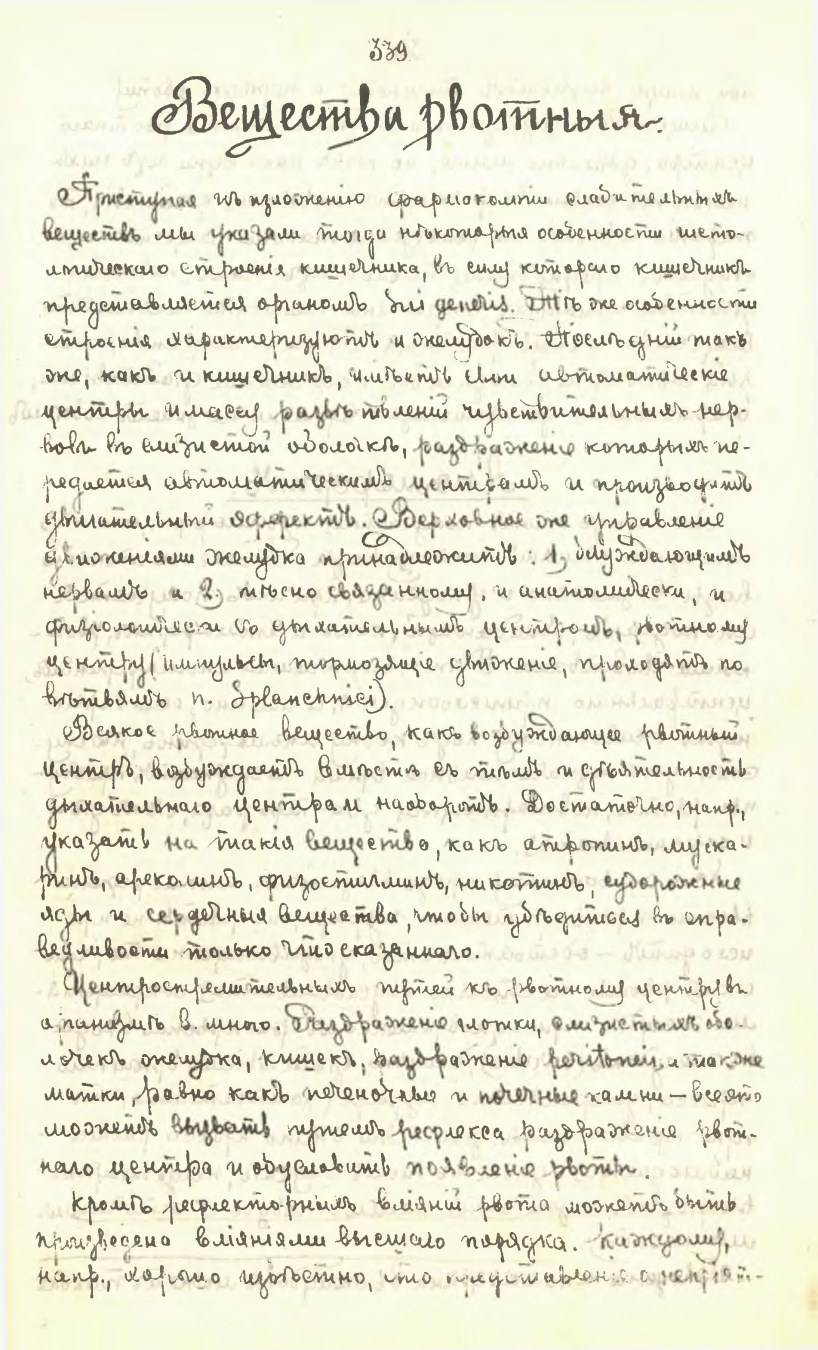 339
Вещества рвотныя.
Приступая къ изложенію фармокологіи слабительныхъ
веществъ мы указали тогда нѣкоторыя особенности гисто-
логическаго строенія кишечника, въ силу котораго кишечникъ
представляется органомъ sui generis. Тѣ же особенности
строенія характеризуютъ и желудокъ. Послѣдній такъ
же, какъ и кишечникъ, имѣетъ свои автоматическіе
центры и массу развѣтвленій чувствительныхъ нер-
вовъ въ слизистой оболочкѣ, раздраженіе которыхъ пе-
редается автоматическимъ центрамъ и производитъ
двигательный эфферектъ. Верховное же управленіе
движеніями желудка принадлежитъ: 1, блуждающимъ
нервамъ и 2, тѣсно связанному, и анатомически, и
физіологически съ дыхательнымъ центромъ, рвотному
центру (импульсы, тормозящіе движеніе, проходятъ по
вѣтвямъ n. Splanchnici).
Всякое рвотное вещество, какъ возбуждающее рвотный
центръ, возбуждаетъ вмѣстѣ съ тѣмъ и дѣятельность
дыхательнаго центра и наоборотъ. Достаточно, напр.,
указать на такія вещество, какъ атропинъ, муска-
ринъ, ареколинъ, физостигминъ, никотинъ, судорожные
яды и сердечныя вещества, чтобы убѣдиться въ спра-
ведливости только что сказаннаго.
Центростремительныхъ путей къ рвотному центру въ
организмѣ в. много. Раздраженіе глотки, слизистыхъ обо-
лочекъ желудка, кишекъ, раздраженіе peritonei, а также
матки, равно какъ печеночные и почечные камни — все это
можетъ вызвать путемъ рефлекса раздраженіе рвот-
наго центра и обусловить появленіе рвоты.
Кромѣ рефлекторныхъ вліяній рвота можетъ быть
произведена вліяніями высшаго порядка. Каждому,
напр., хорошо извѣстно, что представленіе о непріят-